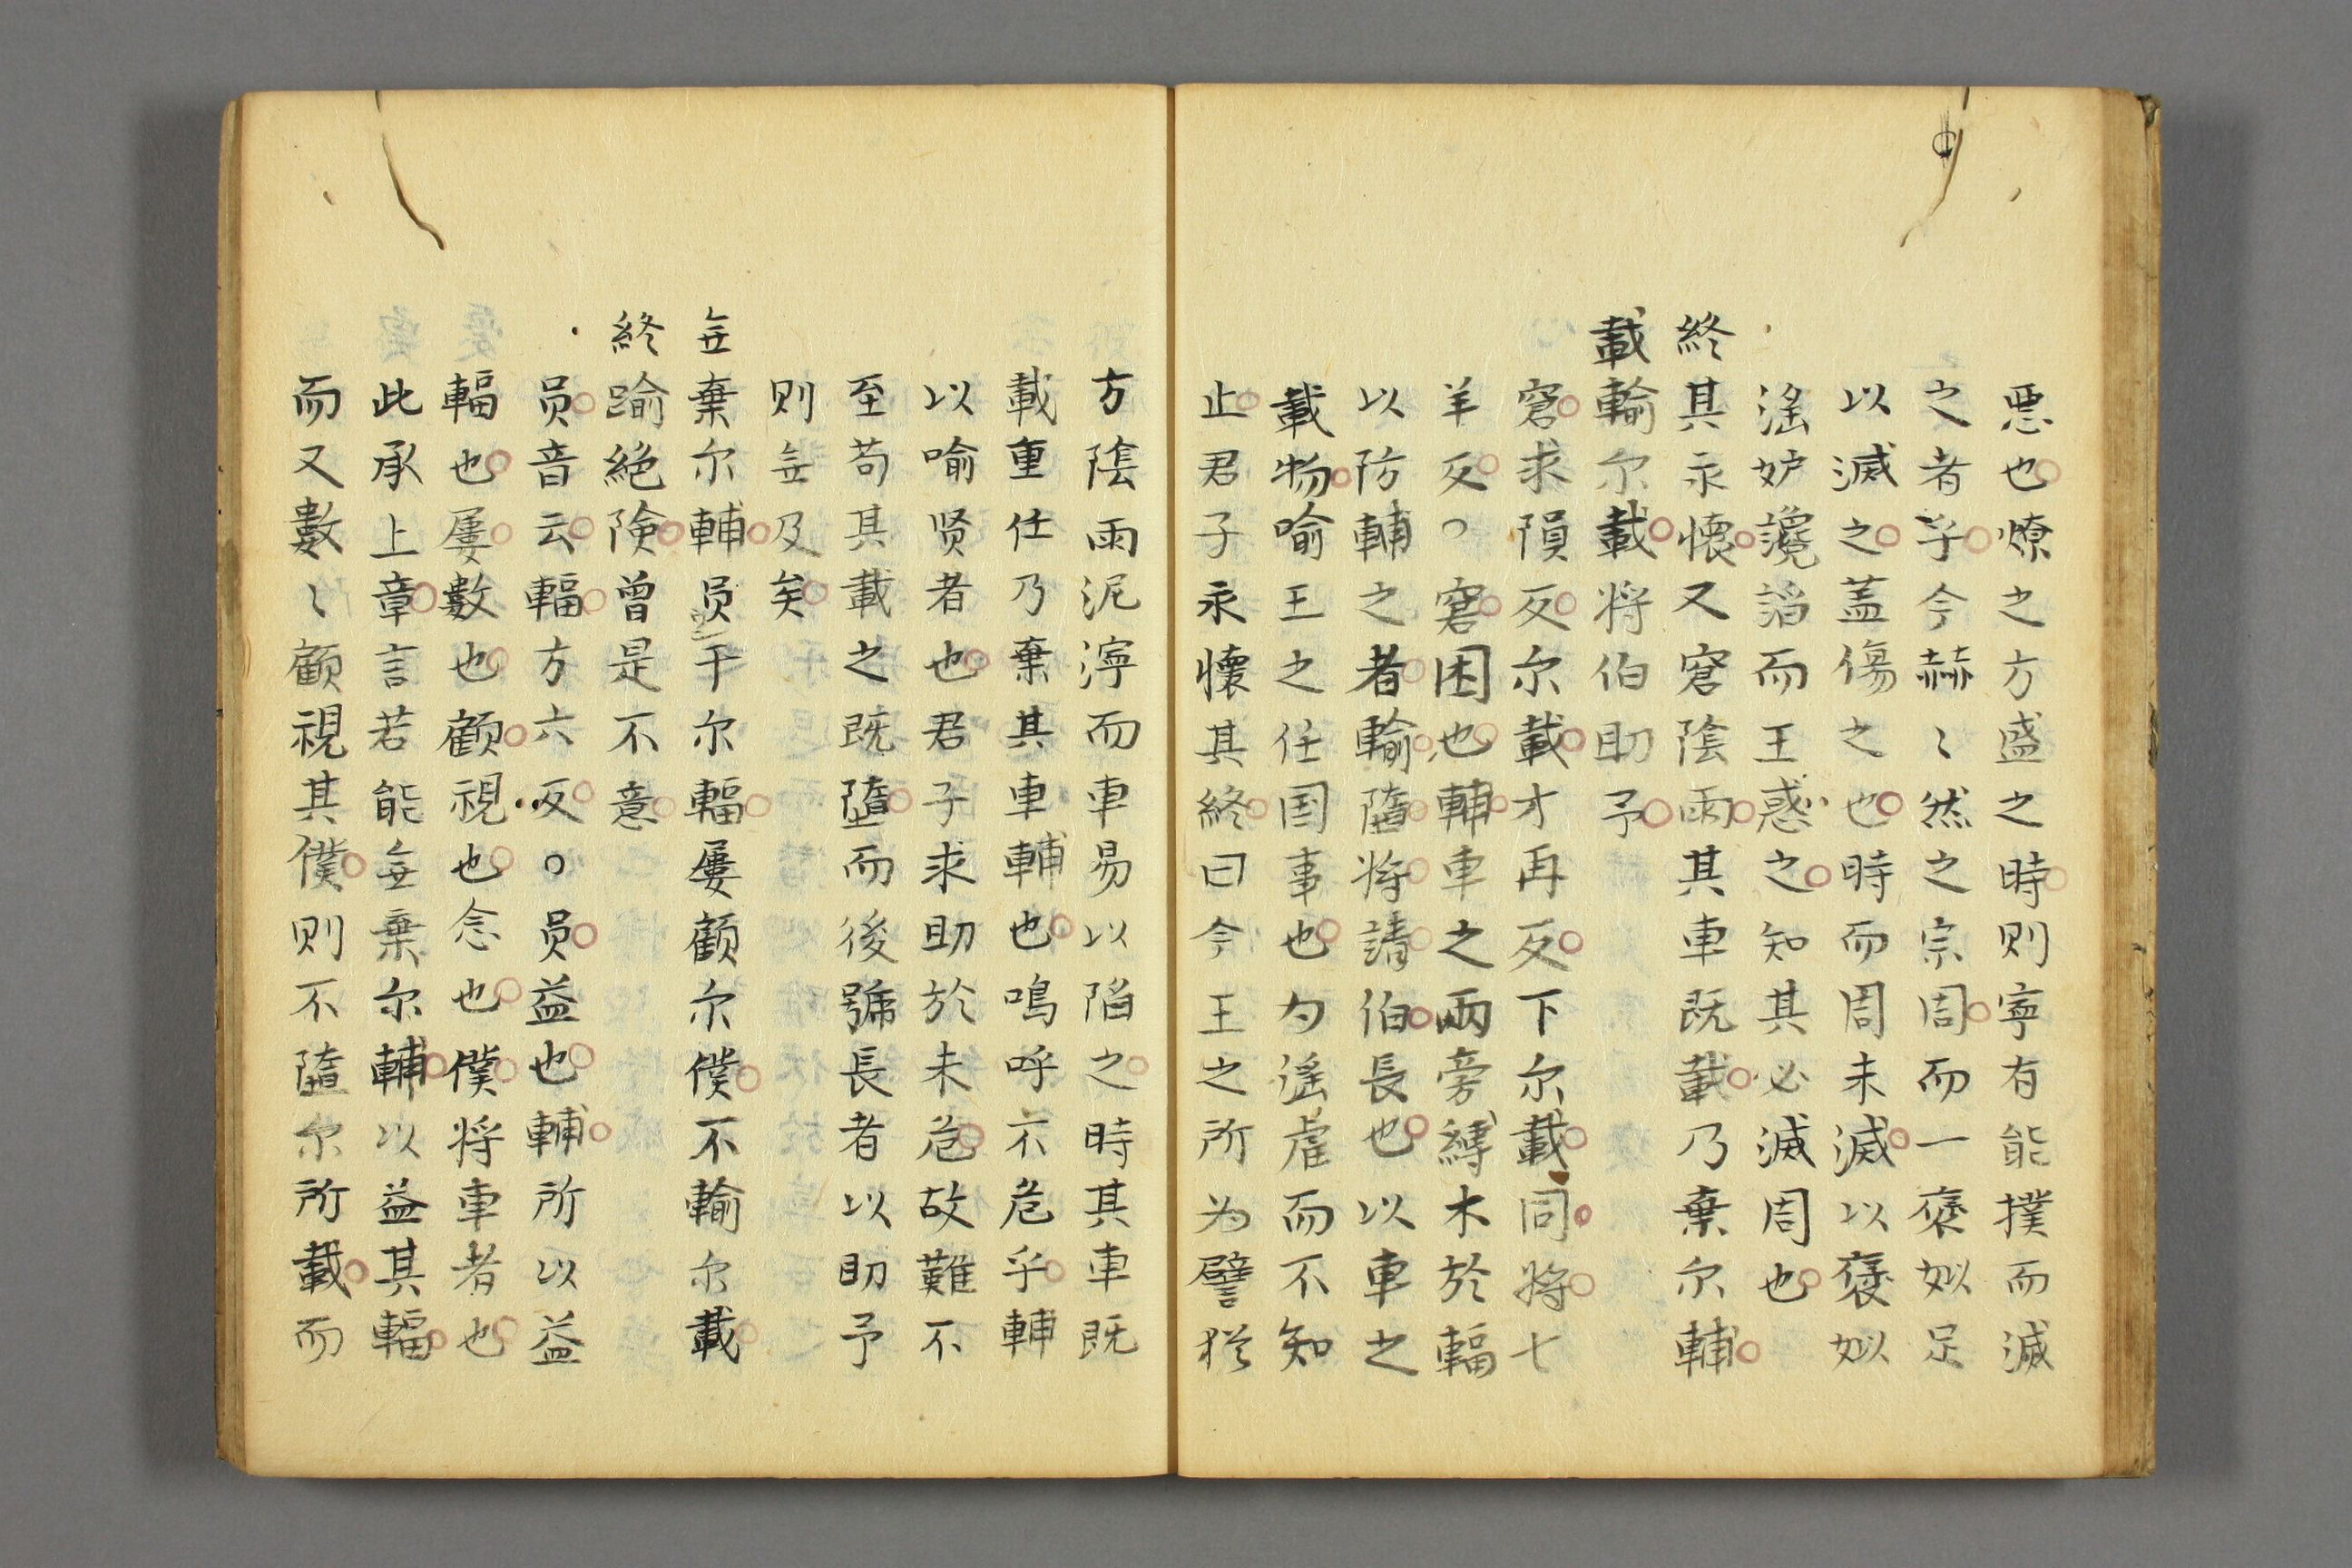 悪也燎之方盛之時則寧有能撲而滅
之者乎今赫〻然之宗周而一褒姒足
以滅之蓋傷之也時而周未滅以褒姒
滛妒讒諂而王惑之知其必滅周也
終其永懷又窘陰雨其車既載乃棄尔輔
載輸尔載将伯助予
窘求隕反尔載才再反下尔載同将七
羊反○窘困也輔車之兩旁縛木於輻
以防輔之者輸墮将請伯長也以車之
載物喻王之任国事也勾滛虐而不知
止君子永懷其終曰今王之所为譬猶
方陰雨泥濘而車易以陷之時其車既
載重任乃棄其車輔也鳴呼不危乎輔
以喻贤者也君子求助於未危故難不
至苟其載之既墮而後號長者以助予
則無及矣
無棄尔輔员于尔輻屢顧尔僕不輸尔載
終踰絕険曾是不意
员音云輻方六反○员益也輔所以益
輻也屢數也顧視也念也僕将車者也
此承上章言若能無棄尔輔以益其輻
而又數〻顧視其僕則不墮尔所載而